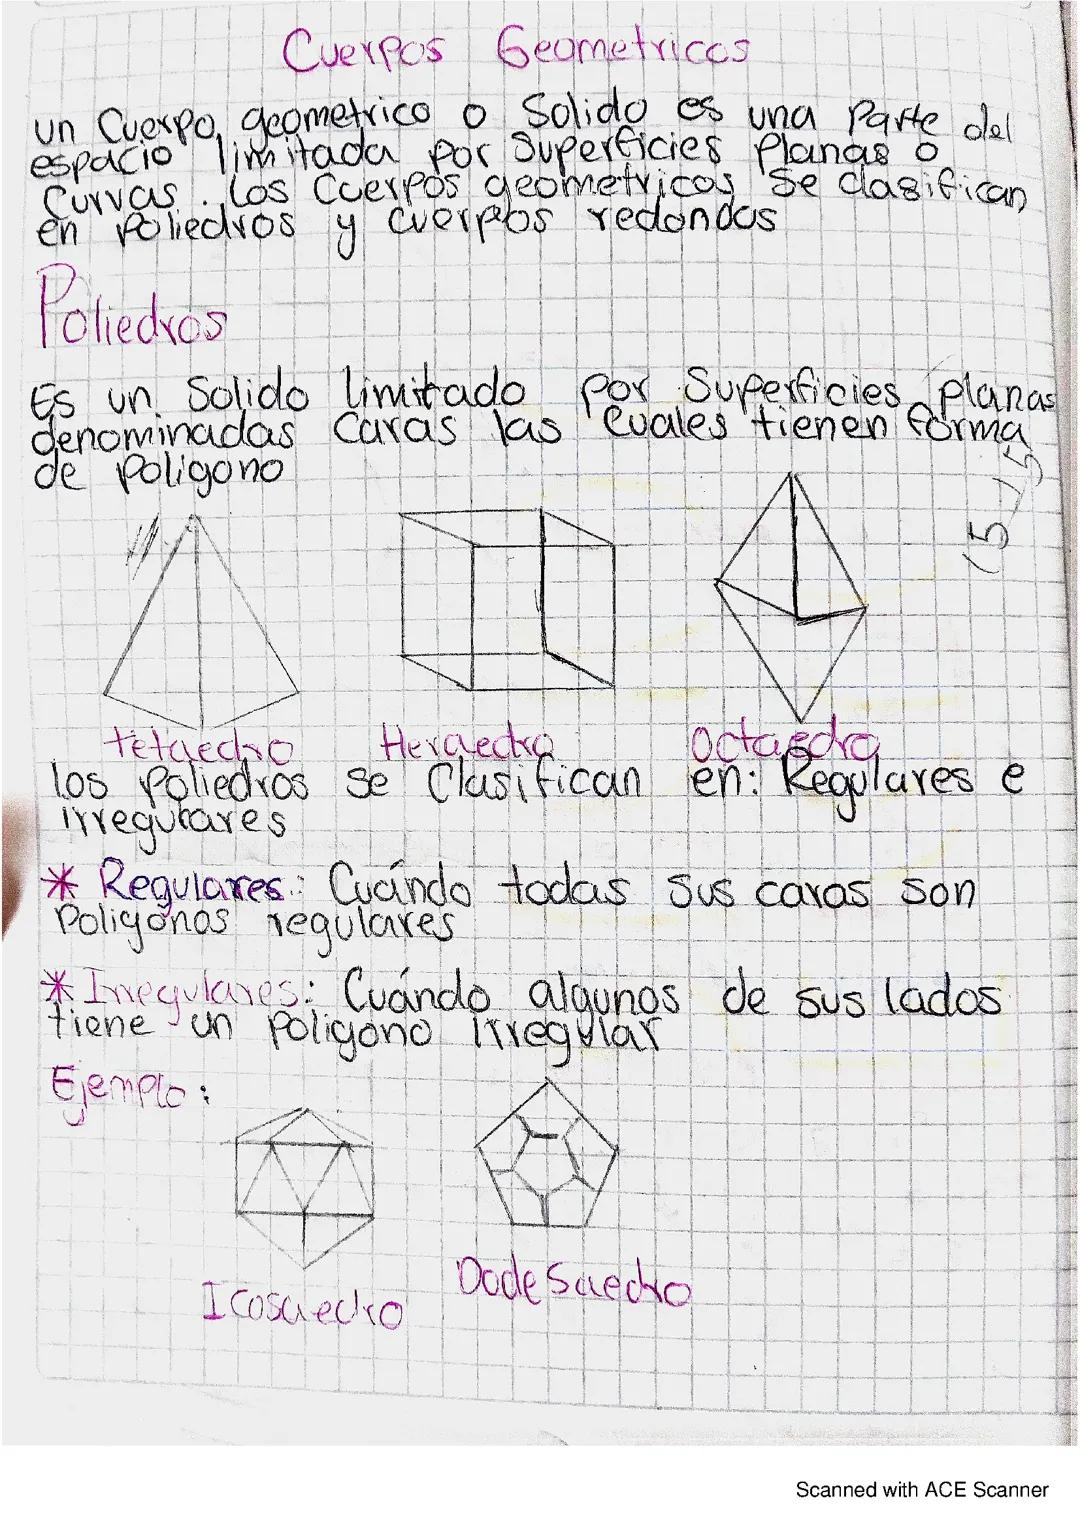 Cuerpos Geometricos
un Cuerpo geometrico o Solido es una Parte del
espacio limitada por Superficies Planas o
Curvas. Los Cuerpos geometricos Se clasifican
en Poliedros y cuerpos redondos
Poliedros
Es un Solido limitado por Superficies planas
denominadas Caras las Cuales tienen forma
de poligono
Tetaedro Hexaedro Octaedro
los Poliedros se Clasifican en: Regulares e
irregulares
* Regulares: Cuándo todas sus caras son
Poligonos regulares
* Irregulares: Cuándo algunos de sus lados
tiene un poligono irregular
Ejemplo:
Icosaedro DodeSaedro
Scanned with ACE Scanner